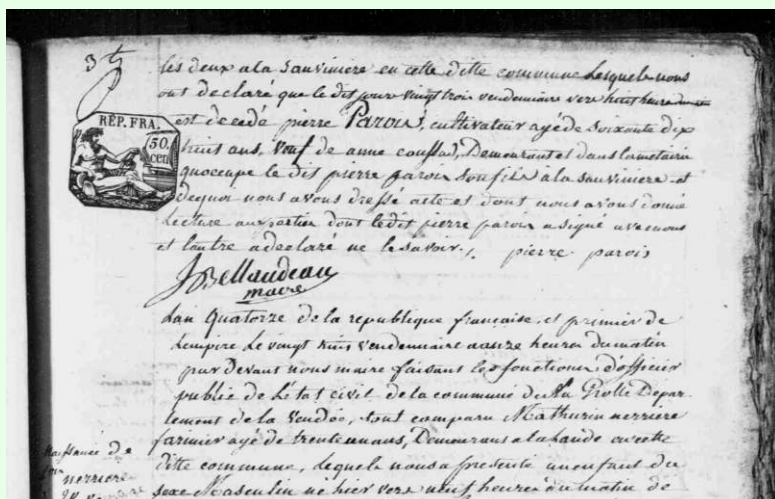 3
RÉP. FRA.
50.
cen
les deux a la sauviniere en cette ditte commune lesquels nous
ont declaré que le dis jour vingt trois vendemiaire vers huit heure
est decedé pierre Parois, cultivateur agé de soixante dix
huit ans, veuf de anne Demeurant et dans la metairie
quoccupe le dis pierre parois son fils a la sauviniere et
dequoi nous avons dressé acte et dont nous avons donné
lecture aux parties dont le dit pierre parois a signé avec nous
et lautre a declaré ne le savoir. pierre parois
JBellaudeau
maire
Lan Quatorze de la republique française, et premier de
lempire le vingt huis vendemiaire a onze heures du matin
par devant nous maire faisant les fonctions d'officier
public de letat civil de la commune de la Grolle Depar-
tement de la Vendée, sont comparu Mathurin nerriere
farinier agé de trente un ans, Demeurant a la Lande en cette
Naissance de
ditte commune, lequel nous a presenté un enfant du
nerriere
sexe Masculin né hier vers neuf heures du matin de